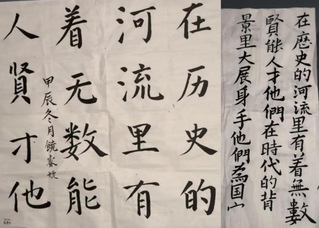 在历史的
河流里有
着无数能
人贤才他
甲辰冬月
在歷史的河流里有着無數
賢能人才他們在時代的背
景里大展身手他們為国